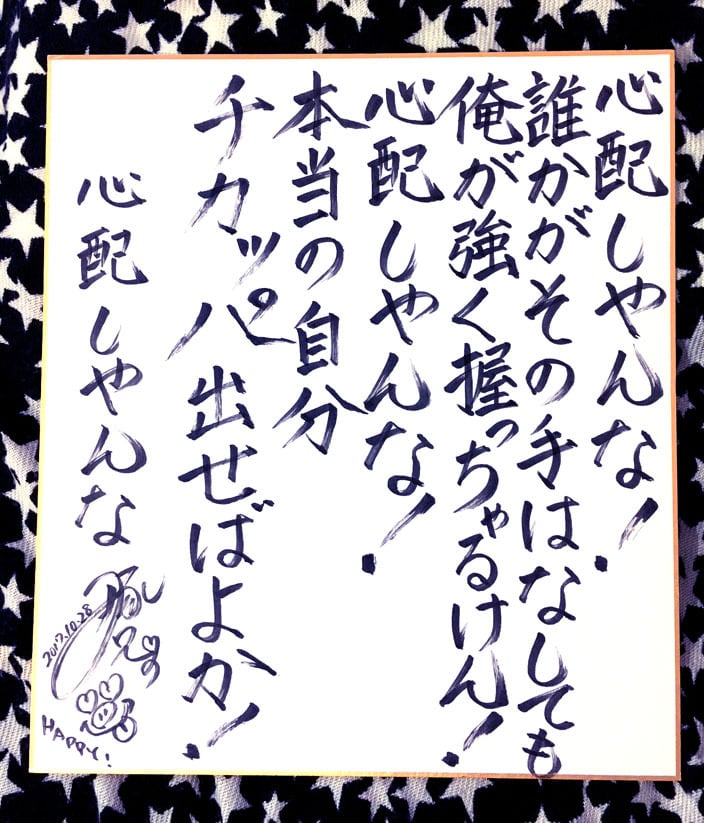 心配しやんな!
誰かがその手はなしても
俺が強く握っちゃるけん!
心配しやんな!
本当の自分
チカッパ出せばよか!
心配しやんな
2017.10.28
HAPPY!